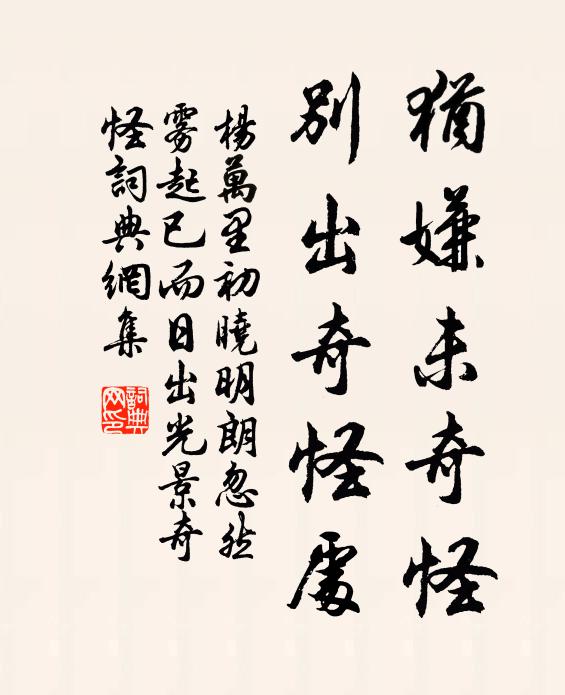 猶嫌未奇怪
別出奇怪處
楊萬里初曉明朗忽然
霧起已而日出光景奇
怪詞典網集
詞典
网印